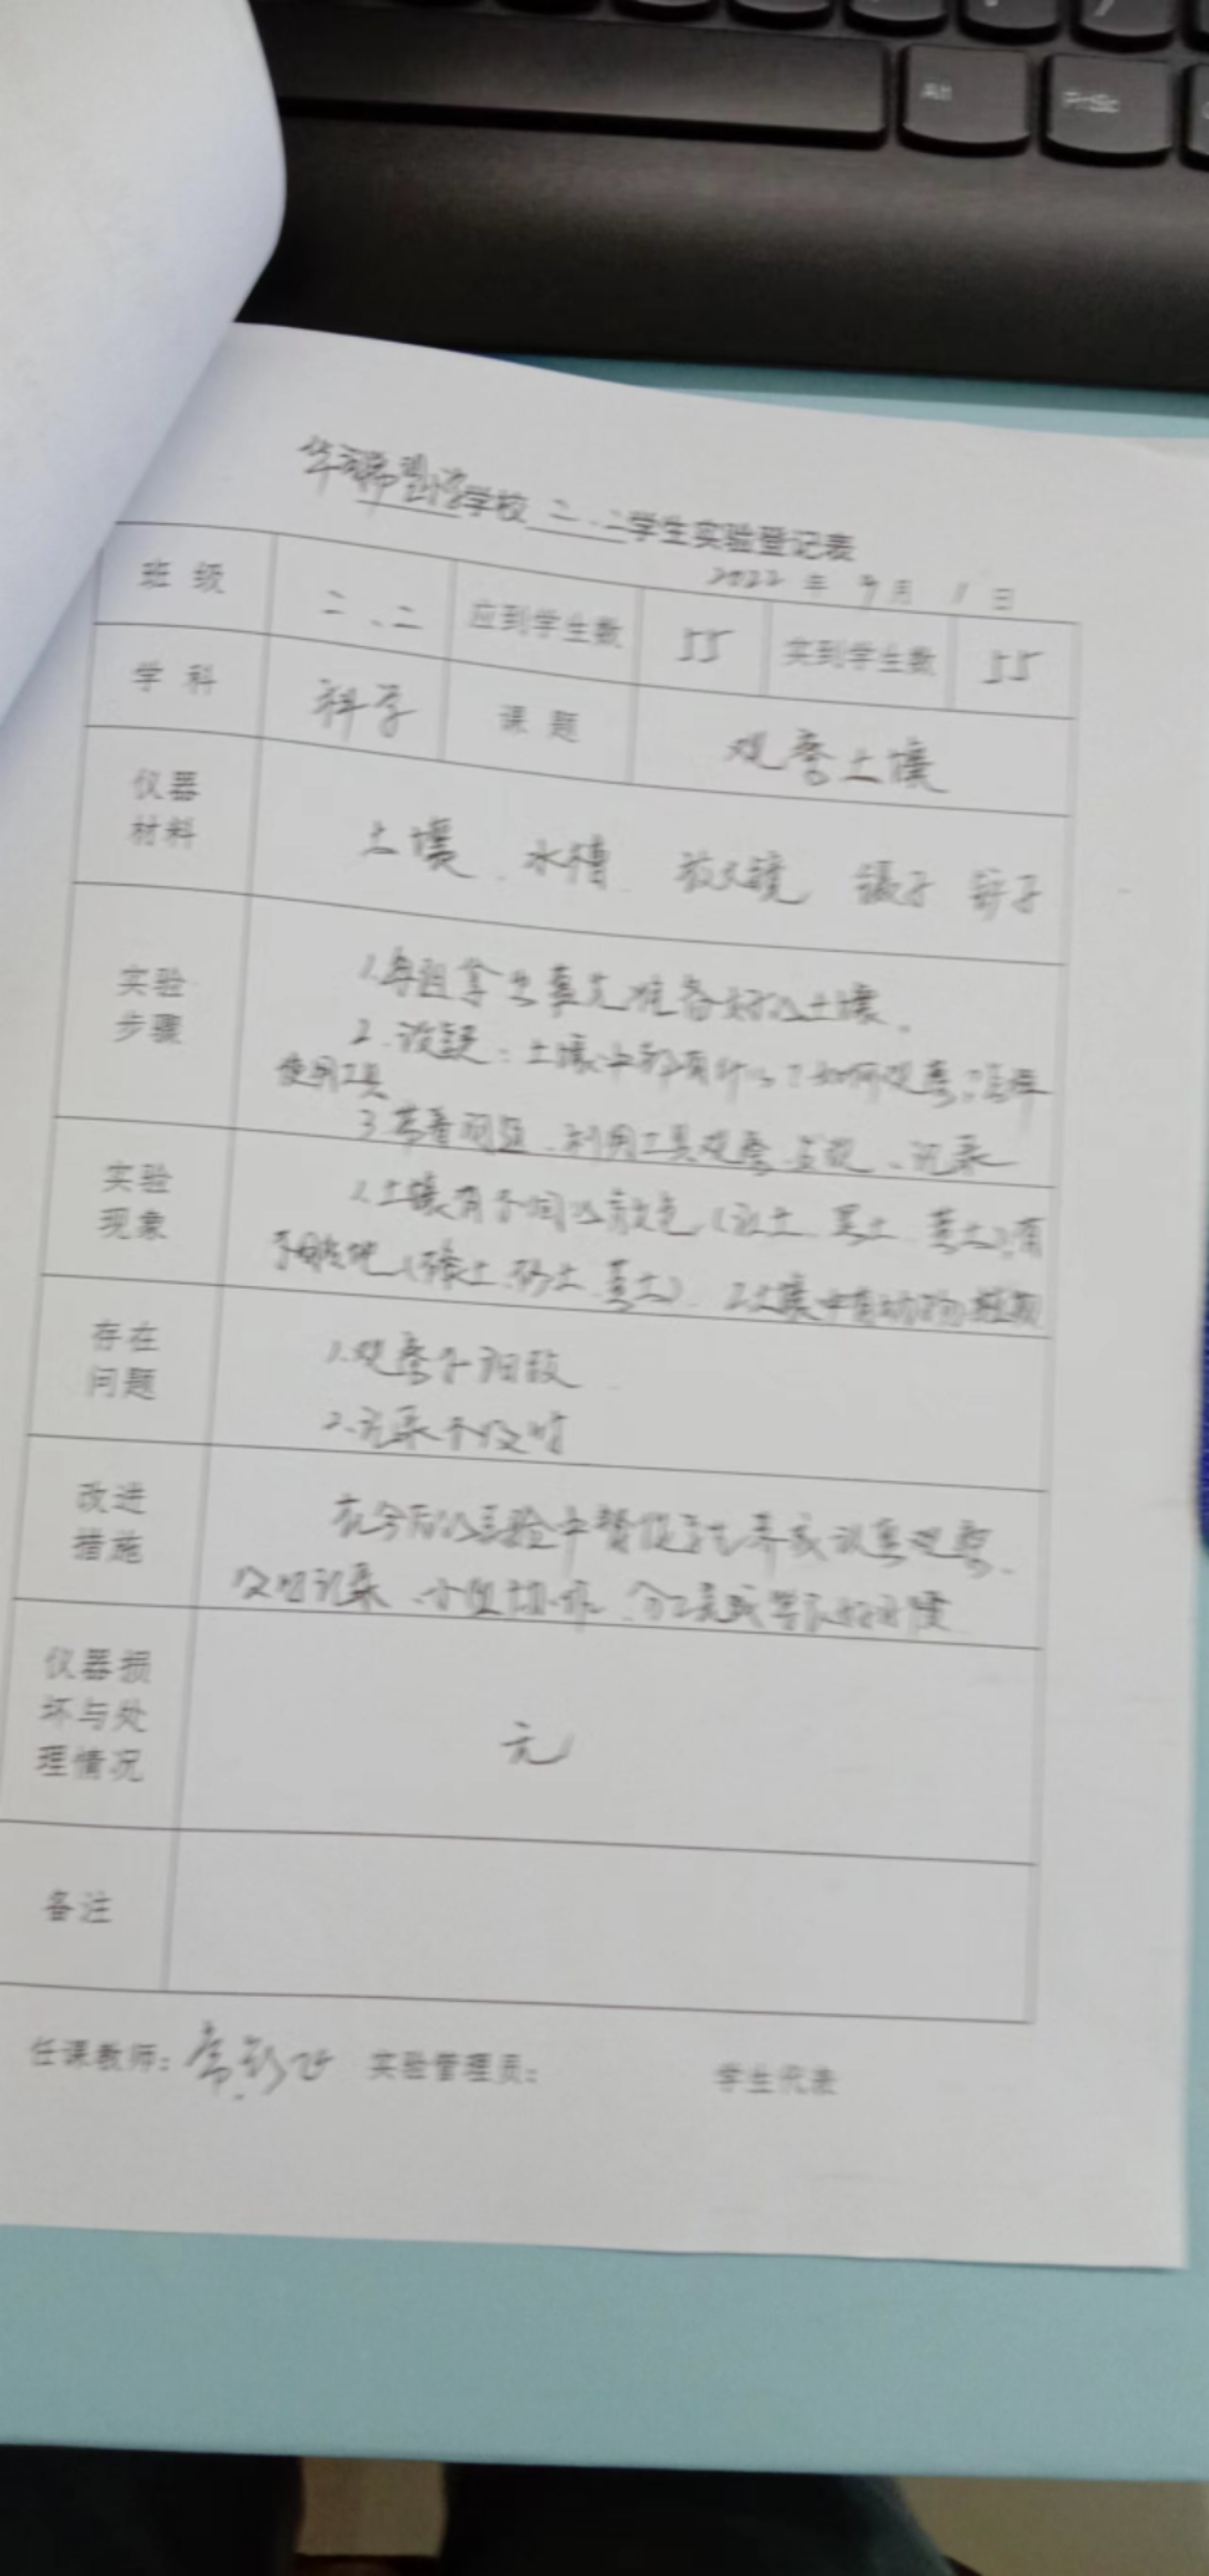 学校 二.二学生实验登记表
2022 年 9 月 1 日
班 级 二、二 应到学生数 55 实到学生数 55
学 科 科学 课 题 观察土壤
仪器 材料 土壤 水槽 放大镜 镊子 铲子
实验 步骤 1.每组拿出事先准备好的土壤。
2.设疑:土壤中都有什么?如何观察?怎样
使用工具
3.带着问题、利用工具观察 、记录
实验 现象 1.土壤有不同的颜色(红土 黑土 黄土)有
2.土壤中有动物
存在 问题 1.观察不细致
2.记录不及时
改进 措施 在今后的实验中督促学生养成认真观察、
及时记录、小组协作、分工 习惯
仪器损 坏与处 理情况 无
备注
任课教师: 实验管理员: 学生代表
Alt
PrtSc